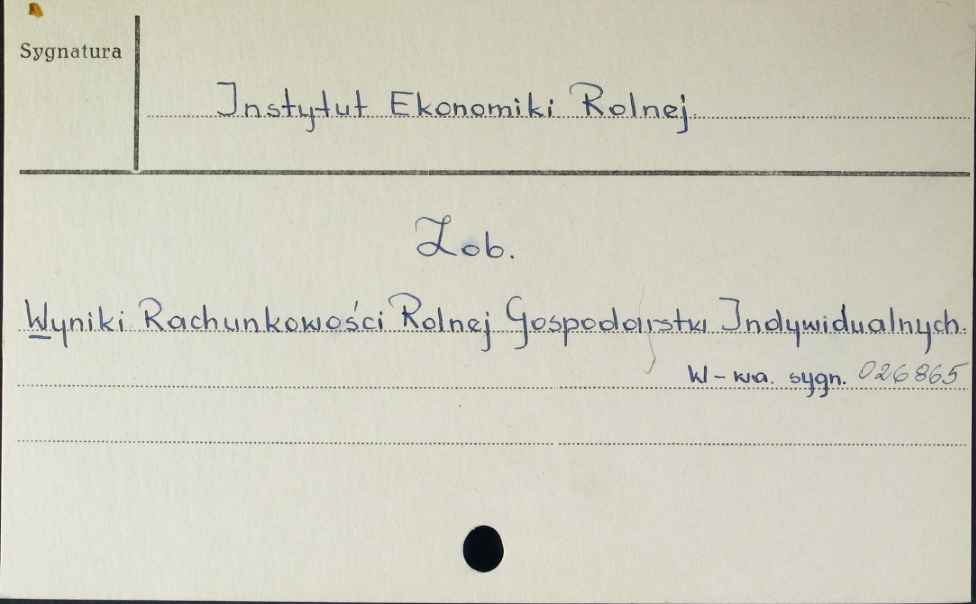 Sygnatura
Instytut Ekonomiki Rolnej
Zob.
Wyniki Rachunkowości Rolnej Gospodarstw Indywidualnych.
W-wa. sygn. 026865